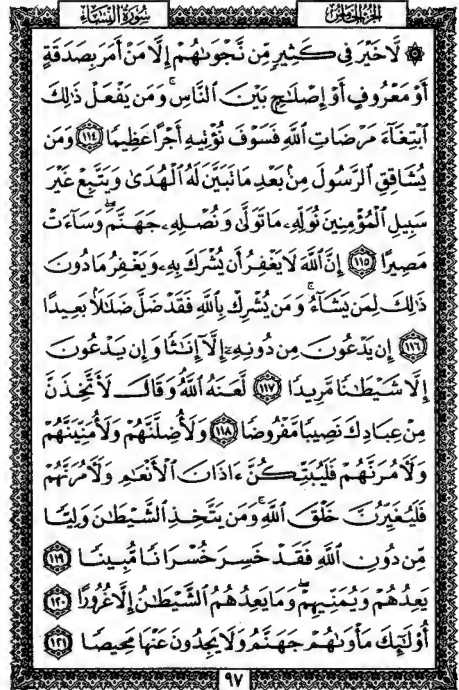 الجزء الخامس
سورة النساء
۞ لَّا خَيْرَ فِي كَثِيرٍ مِّن نَّجْوَىٰهُمْ إِلَّا مَنْ أَمَرَ بِصَدَقَةٍ
أَوْ مَعْرُوفٍ أَوْ إِصْلَٰحٍۭ بَيْنَ ٱلنَّاسِۚ وَمَن يَفْعَلْ ذَٰلِكَ
ٱبْتِغَآءَ مَرْضَاتِ ٱللَّهِ فَسَوْفَ نُؤْتِيهِ أَجْرًا عَظِيمًا ١١٤ وَمَن
يُشَاقِقِ ٱلرَّسُولَ مِنۢ بَعْدِ مَا تَبَيَّنَ لَهُ ٱلْهُدَىٰ وَيَتَّبِعْ غَيْرَ
سَبِيلِ ٱلْمُؤْمِنِينَ نُوَلِّهِۦ مَا تَوَلَّىٰ وَنُصْلِهِۦ جَهَنَّمَۖ وَسَآءَتْ
مَصِيرًا ١١٥ إِنَّ ٱللَّهَ لَا يَغْفِرُ أَن يُشْرَكَ بِهِۦ وَيَغْفِرُ مَا دُونَ
ذَٰلِكَ لِمَن يَشَآءُۚ وَمَن يُشْرِكْ بِٱللَّهِ فَقَدْ ضَلَّ ضَلَٰلًۢا بَعِيدًا
١١٦ إِن يَدْعُونَ مِن دُونِهِۦٓ إِلَّآ إِنَٰثًا وَإِن يَدْعُونَ
إِلَّا شَيْطَٰنًا مَّرِيدًا ١١٧ لَّعَنَهُ ٱللَّهُۘ وَقَالَ لَأَتَّخِذَنَّ
مِنْ عِبَادِكَ نَصِيبًا مَّفْرُوضًا ١١٨ وَلَأُضِلَّنَّهُمْ وَلَأُمَنِّيَنَّهُمْ
وَلَءَامُرَنَّهُمْ فَلَيُبَتِّكُنَّ ءَاذَانَ ٱلْأَنْعَٰمِ وَلَءَامُرَنَّهُمْ
فَلَيُغَيِّرُنَّ خَلْقَ ٱللَّهِۚ وَمَن يَتَّخِذِ ٱلشَّيْطَٰنَ وَلِيًّا
مِّن دُونِ ٱللَّهِ فَقَدْ خَسِرَ خُسْرَانًا مُّبِينًا ١١٩
يَعِدُهُمْ وَيُمَنِّيهِمْۖ وَمَا يَعِدُهُمُ ٱلشَّيْطَٰنُ إِلَّا غُرُورًا ١٢٠
أُو۟لَٰٓئِكَ مَأْوَىٰهُمْ جَهَنَّمُ وَلَا يَجِدُونَ عَنْهَا مَحِيصًا ١٢١
٩٧